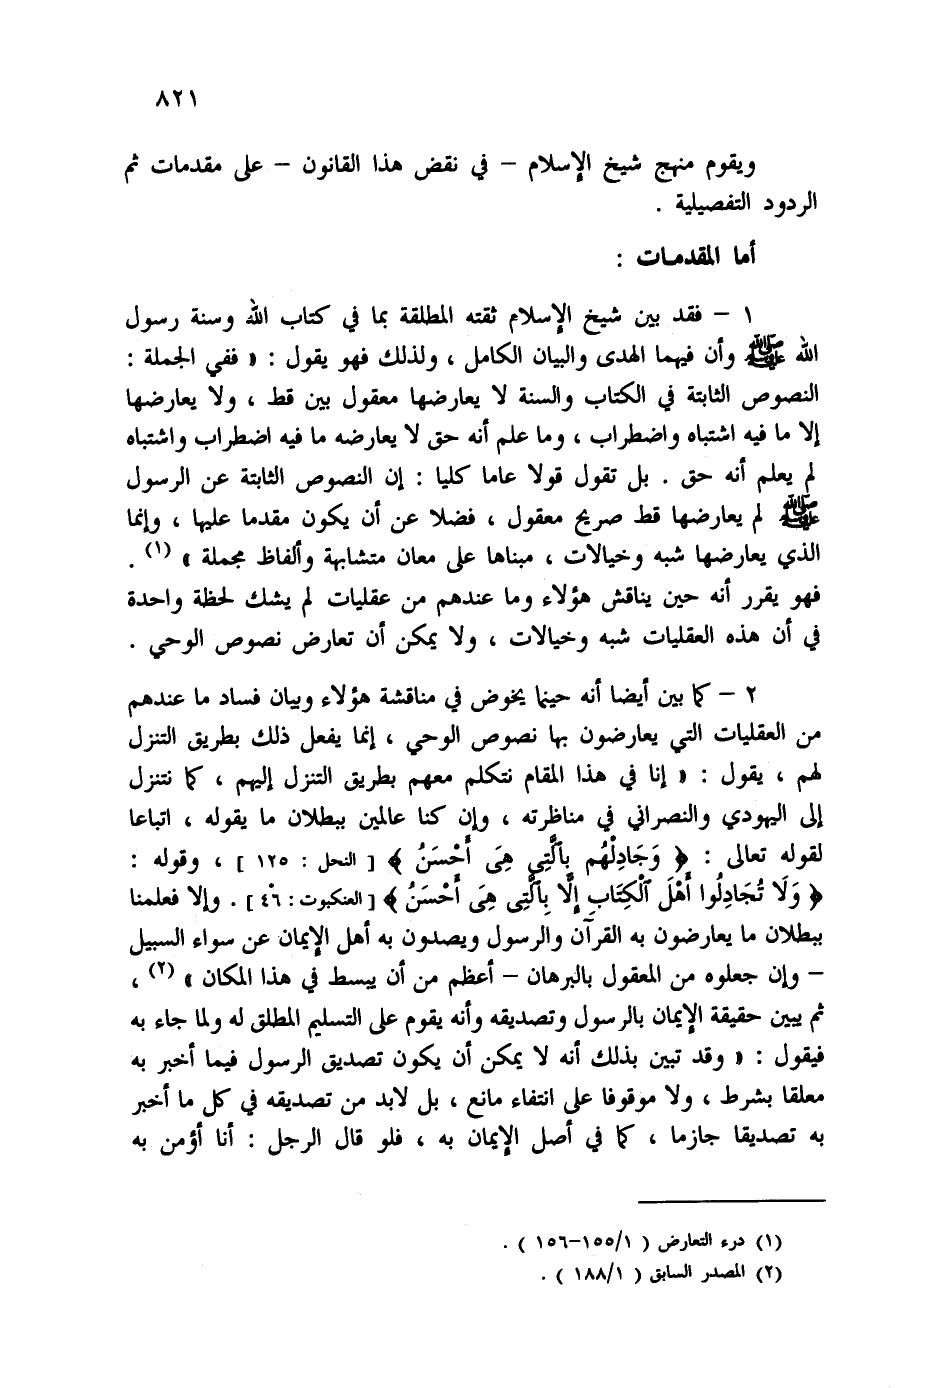 ٨٢١
ويقوم منهج شيخ الإسلام – في نقض هذا القانون – على مقدمات ثم
الردود التفصيلية .
أما المقدمات :
١ – فقد بين شيخ الإسلام ثقته المطلقة بما في كتاب الله وسنة رسول
الله ﷺ وأن فيهما الهدى والبيان الكامل ، ولذلك فهو يقول : « ففي الجملة :
النصوص الثابتة في الكتاب والسنة لا يعارضها معقول بين قط ، ولا يعارضها
إلا ما فيه اشتباه واضطراب ، وما علم أنه حق لا يعارضه ما فيه اضطراب واشتباه
لم يعلم أنه حق . بل تقول قولا عاما كليا : إن النصوص الثابتة عن الرسول
ﷺ لم يعارضها قط صريح معقول ، فضلا عن أن يكون مقدما عليها ، وإنما
الذي يعارضها شبه وخيالات ، مبناها على معان متشابهة وألفاظ مجملة » (١) .
فهو يقرر أنه حين يناقش هؤلاء وما عندهم من عقليات لم يشك لحظة واحدة
في أن هذه العقليات شبه وخيالات ، ولا يمكن أن تعارض نصوص الوحي .
٢ – كما بين أيضا أنه حينما يخوض في مناقشة هؤلاء وبيان فساد ما عندهم
من العقليات التي يعارضون بها نصوص الوحي ، إنما يفعل ذلك بطريق التنزل
لهم ، يقول : « إنا في هذا المقام نتكلم معهم بطريق التنزل إليهم ، كما نتنزل
إلى اليهودي والنصراني في مناظرته ، وإن كنا عالمين ببطلان ما يقوله ، اتباعا
لقوله تعالى : ﴿ وَجَادِلْهُم بِٱلَّتِى هِىَ أَحْسَنُ ﴾ [ النحل : ١٢٥ ] ، وقوله :
﴿ وَلَا تُجَادِلُوا أَهْلَ ٱلْكِتَابِ إِلَّا بِٱلَّتِى هِىَ أَحْسَنُ ﴾ [ العنكبوت : ٤٦ ] . وإلا فعلمنا
ببطلان ما يعارضون به القرآن والرسول ويصدون به أهل الإيمان عن سواء السبيل
– وإن جعلوه من المعقول بالبرهان – أعظم من أن يبسط في هذا المكان » (٢) ،
ثم يبين حقيقة الإيمان بالرسول وتصديقه وأنه يقوم على التسليم المطلق له ولما جاء به
فيقول : « وقد تبين بذلك أنه لا يمكن أن يكون تصديق الرسول فيما أخبر به
معلقا بشرط ، ولا موقوفا على انتفاء مانع ، بل لابد من تصديقه في كل ما أخبر
به تصديقا جازما ، كما في أصل الإيمان به ، فلو قال الرجل : أنا أؤمن به
(١) درء التعارض ( ١/١٥٥–١٥٦ ) .
(٢) المصدر السابق ( ١/١٨٨ ) .